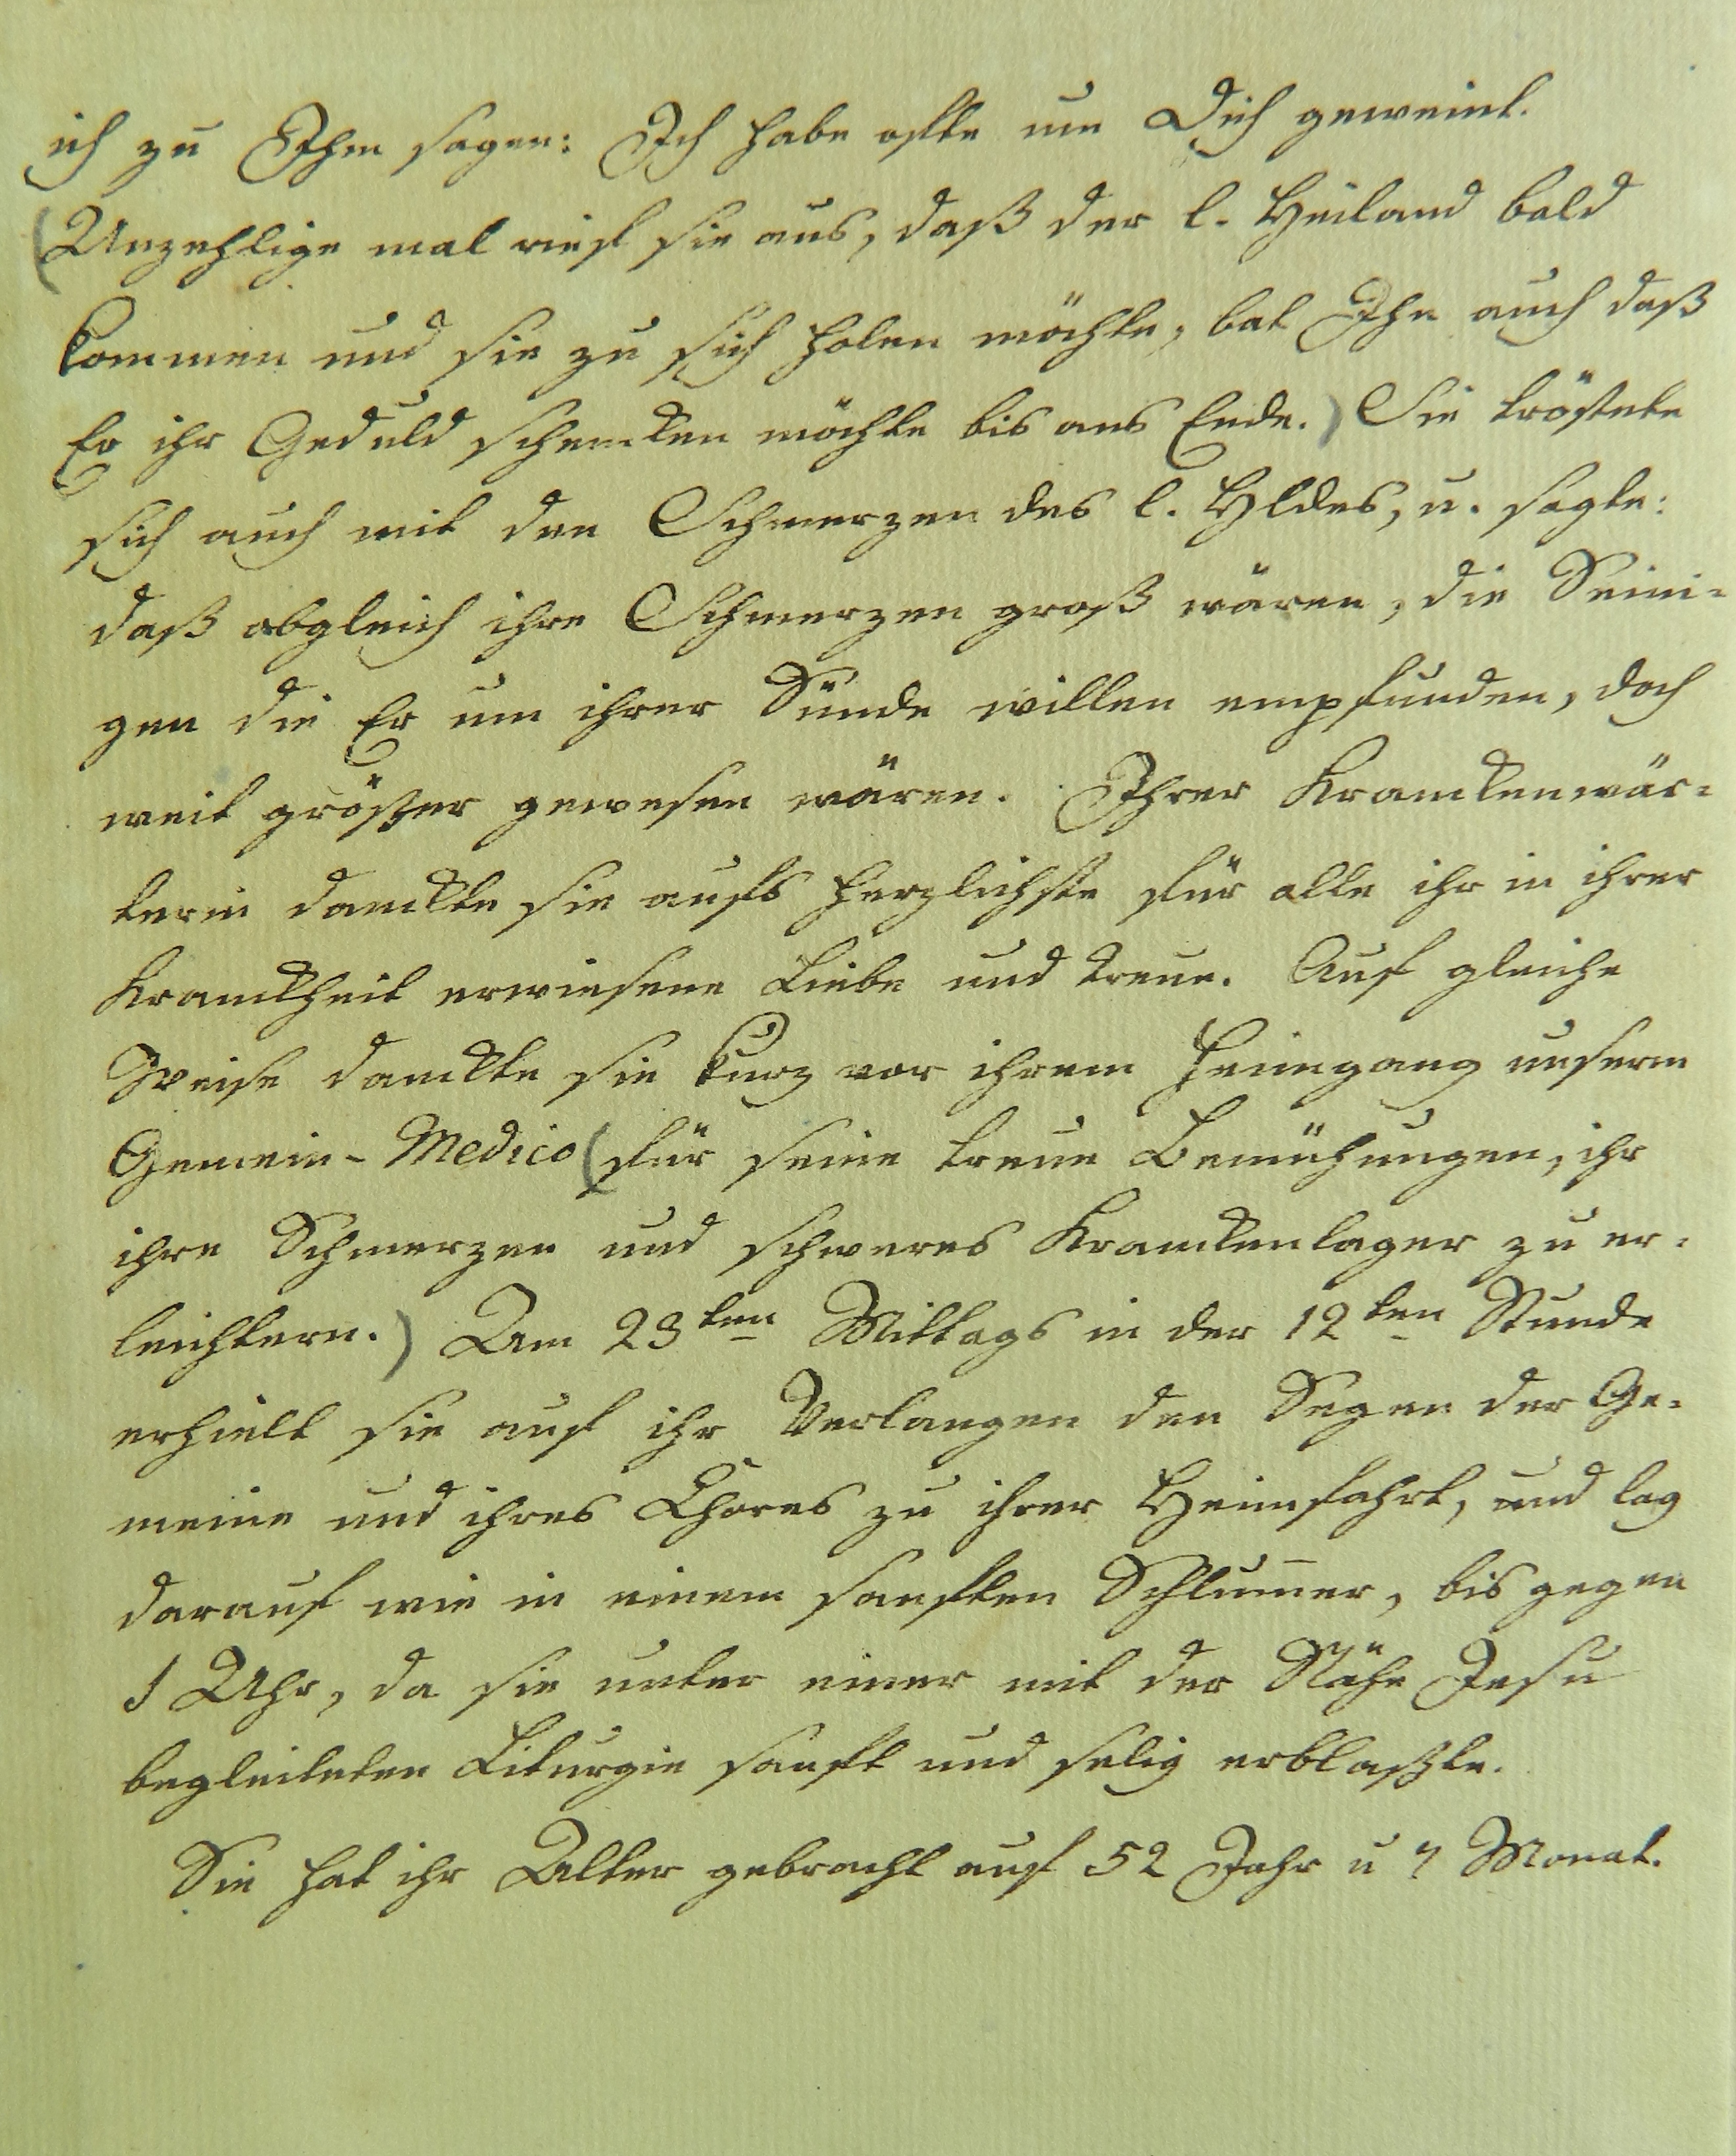 ich zu Ihm sagen: Ich habe offte um Dich geweint.
(Unzehlige mal rief sie aus, daß der l. Heiland bald
kommen und sie zu sich holen möchte, bat Ihn auch daß
Er ihr Geduld schencken möchte bis ans Ende.) Sie tröstete
sich auch mit den Schmerzen des l. Hldes, u. sagte:
daß obgleich ihre Schmerzen groß wären, die Seini-
gen die Er um ihrer Sünde willen empfunden, doch
weit größer gewesen wären. Ihrer Kranckenwär-
terin danckte sie aufs herzlichste für alle ihr in ihrer
Kranckheit erwiesene Liebe und treue. Auf gleiche
Weise danckte sie kurz vor ihrem Heimgang unserm
Gemein-Medico (für seine treue Bemühungen, ihr
ihre Schmerzen und schweres Kranckenlager zu er-
leichtern.) Am 23ten Mittags in der 12ten Stunde
erhielt sie auf ihr Verlangen den Segen der Ge-
meine und ihres Chores zu ihrer Heimfahrt, und lag
darauf wie in einem sanften Schlum̅er, bis gegen
1 Uhr, da sie unter einer mit der Nähe Jesu
begleiteten Liturgie sanft und selig erblaßte.
Sie hat ihr Alter gebracht auf 52 Jahr u 7 Monat.